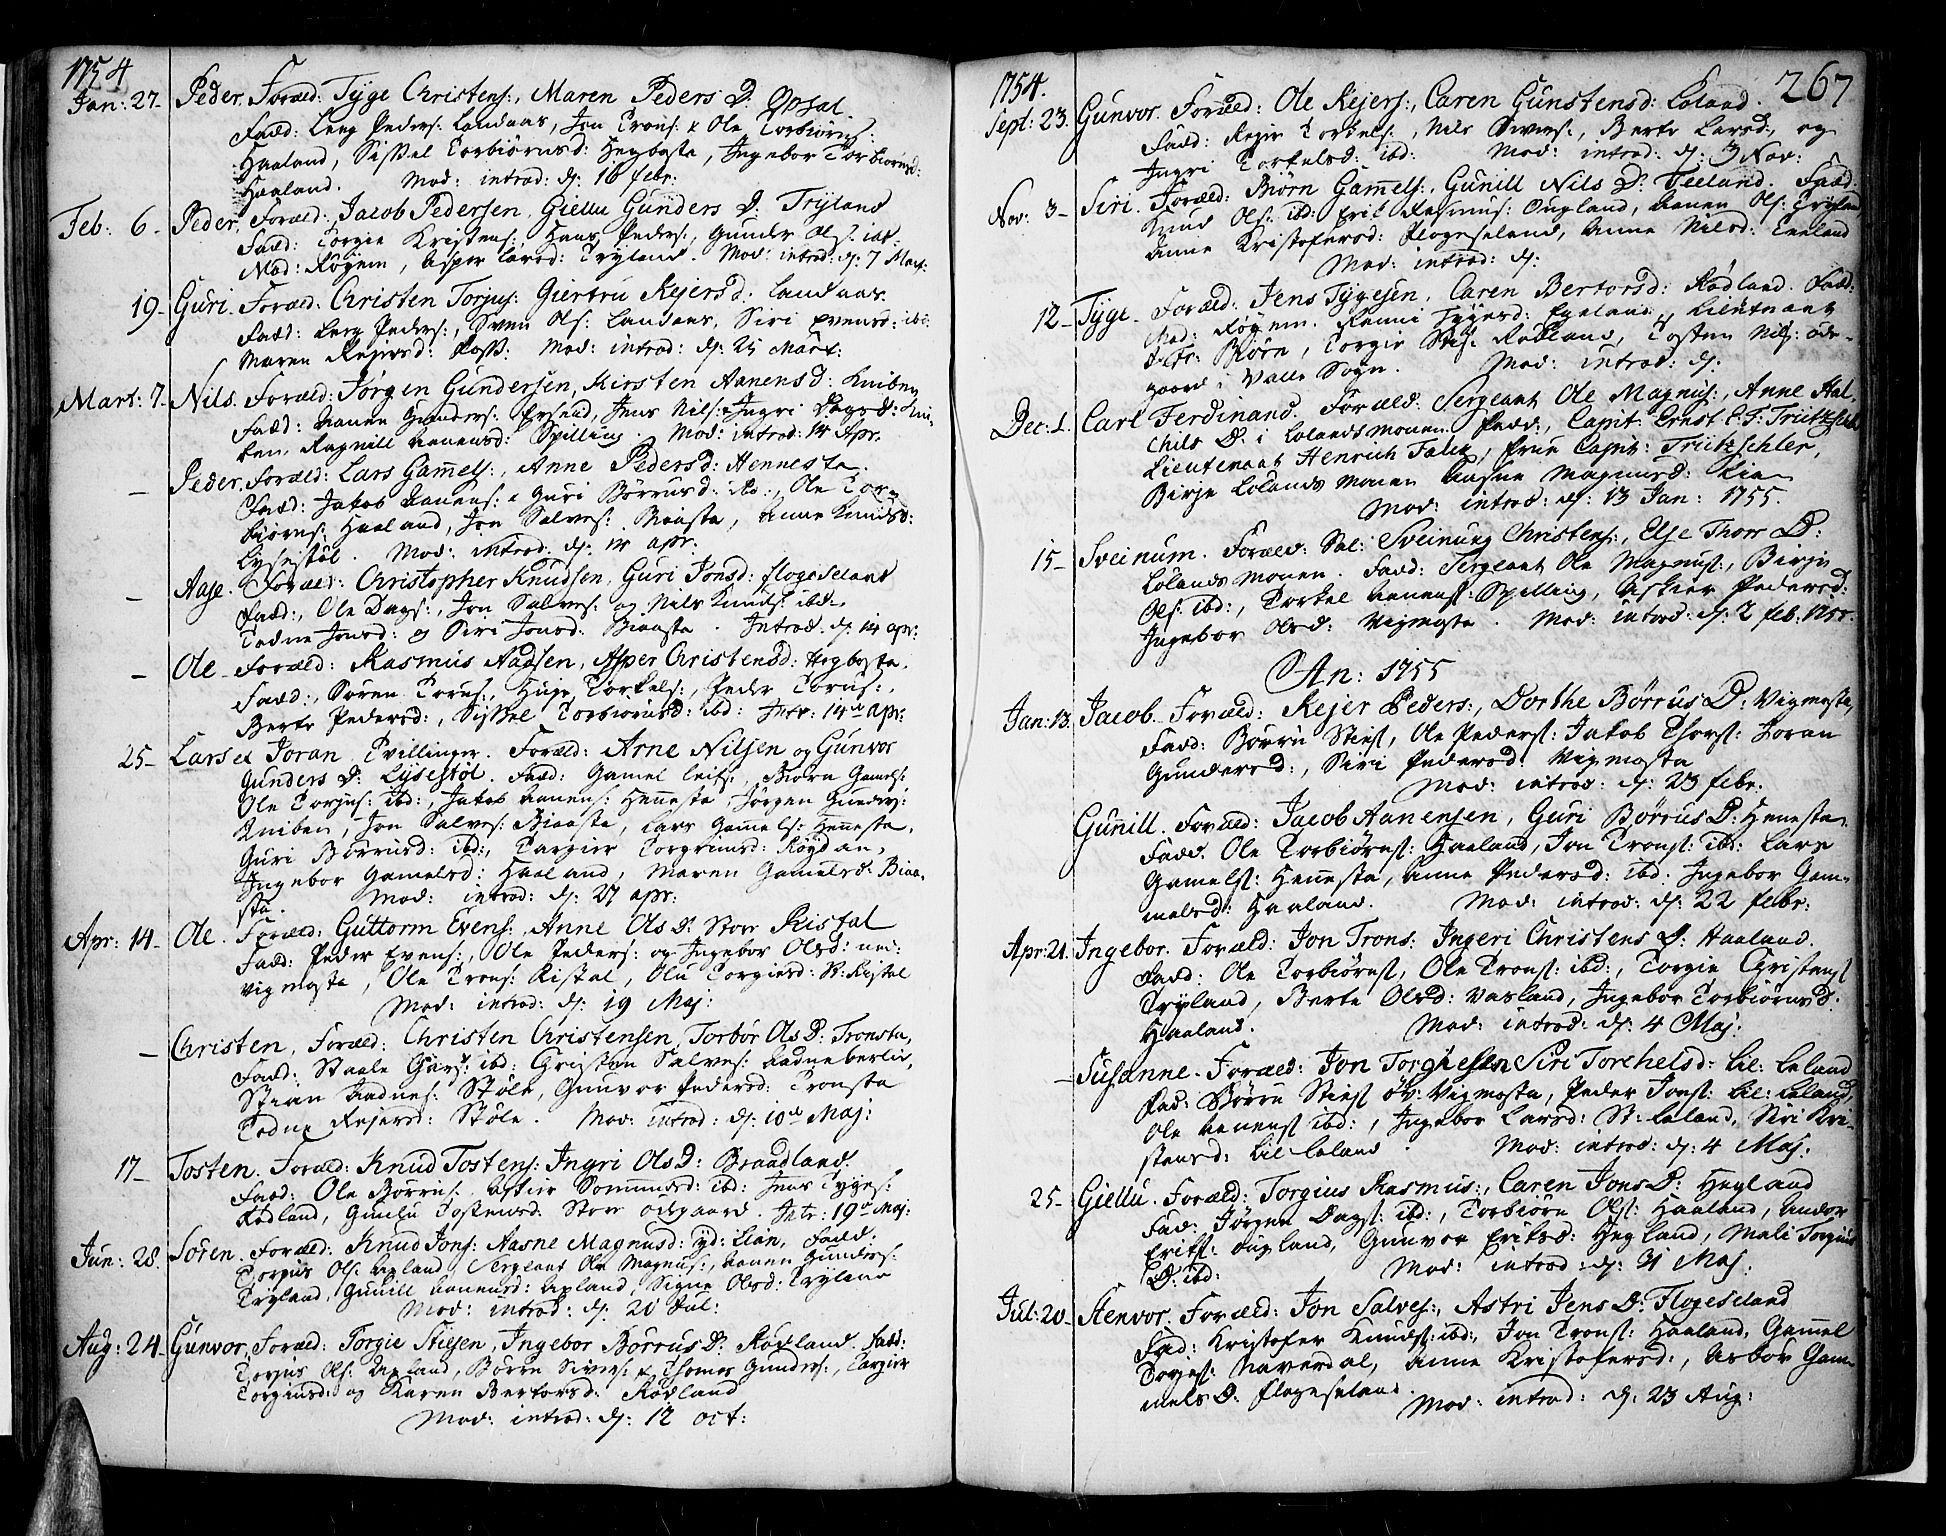 1754
Jan: 27. Peder. Foræld: Tyge Christens:, Maren Peders D. Opsal.
Fadd: Lerg Peders: Landaas, Jon Trons: & Ole Torbiørns:
Haaland, Sissel Torbiørnsd: Hegbosta, Ingebor Torbiørnsd:
Haaland. Mod: introd: d: 16 febr:
Feb: 6 - Peder. Foræld: Jacob Pedersen, Giellu Gunders D: Tryland
Fadd: Torgie Kristens:, Hans Peders:, Gunder Ols: ibd:
Mod: Røgem, Asper Larsd: Tryland. Mod: introd: d: 7 Mart:
19 - Guri. Foræld: Christen Torjus: Giertru Rejersd: Landaas.
Fadd: Lerg Peders:, Sven Ols: Landaas, Siri Evensd: ibd:
Maren Rejersd: Foss: Mod: introd: d: 25 Mart:
Mart: 7. Nils. Foræld: Jørgen Gundersen, Kirsten Aanensd: Kniben
Fadd: Aanen Gunders: Ersdal, Jens Nils: & Ingri Dagsd: Kni-
ben, Ragnill Aanensd: Spilling Mod: introd: 14 Apr.
- Peder. Foræld: Lars Gam̄els:, Anne Pedersd: Hennesta.
Fadd: Jakob Aanens: & Guri Børrusd: ibd:, Ole Tor-
biørns: Haaland, Jon Salves: Biaasta, Anne Knudsd:
Lysestøl. Mod: introd: d: 14 apr:
- Aase. Foræld: Christopher Knudsen, Guri Jonsd: Flogeseland
Fadd:, Ole Dags:, Jon Salves: og Nils Knuds: ibd:
Todne Jonsd: og Siri Jonsd: Biaasta. Introd: d: 14 apr:
- Ole - Foræld: Rasmus Aadsen, Asper Christensd: Hegbosta.
Fadd:, Søren Torus:, Huje Torkels:, Peder Torus:,
Berte Pedersd:, Sissel Torbiørnsd: ibd: Intr: 14 d apr:
25 - Lars et Joran Tvillinger. Foræld: Arne Nilsen og Gunvor
Gunders D: Lysestøl. Fadd: Gamel Leifs:, Biørn Gamels:
Ole Torjus: ibd:, Jakob Aanens: Hen̄esta, Jørgen Gunders:
Kniben, Jon Salves: Biaasta, Lars Gam̄els: Hen̄esta,
Guri Børrusd: ibd:, Targier Torgrimsd: Røydan,
Ingebor Gamelsd: Haaland, Maren Gamelsd: Biaa-
sta. Mod: introd: d: 27 apr:
Apr: 14 - Ole. Foræld: Guttorm Evens:, Anne Ols D: Stor Ristal
Fadd: Peder Evens:, Ole Peders: og Ingebor Olsd: ned:
Vigmosta, Ole Trons: Ristal, Olu Torgiersd: St: Ristel
Mod: introd: d: 19 Maj:
- Christen, Foræld: Christen Christensen, Torbør Ols D: Tronsta,
Fadd: Staale Gars: ibd: Christen Salves: Aadneberlie,
Stian Aadnes: Støle, Gunvor Pedersd: Tronsta
Todne Rejersd: Støle. Mod: introd: d: 10 d Maj:
17 - Tosten. Foræld: Knud Tostens: Ingri Ols D: Braadland.
Fadd: Ole Børrus:, Askier Som̄unsd: ibd: Jens Tyges:
Rødland, Gunlu Tostensd: Store Odgaard. Intr: 19 d Maj:
Jun: 28. Søren. Foræld: Knud Jons: Aasne Magnusd: yd: Lian, Fadd:
Torjus Ols: Upland, Sergeant Ole Magnus:, Aanen Gunders:
Tryland, Gunill Aanensd: Upland, Signe Olsd: Tryland
Mod: introd: d: 20 Jul:
Aug: 24 - Gunvor. Foræld: Torgie Stiesen, Ingebor Børrus D: Rødland. Fadd:
Torjus Ols: Upland, Børre Sivers: & Thomes Gunders:, Targier
Torgiusd: og Karen Bertorsd: Rødland
Mod: introd: d: 12 oct:
1754. 267
Sept: 23. Gunvor. Foræld: Ole Rejers:, Caren Gunstensd: Loland.
Fadd: Rejer Torkels:, Nils Sivers:, Berte Larsd:, og
Ingri Torkelsd: ibd: Mod: introd: d: 3 Nov:
Nov: 3 - Siri. Foræld: Biørn Gam̄els:, Gunill Nils D: Teeland. Fadd
Knud Ols: ibd: Erik Rasmus: Ougland, Aanen Ols: Tryland
Anne Kristofersd: Flogeseland, Anne Nilsd: Teeland
Mod: introd: d:
12 - Tyge - Foræld: Jens Tygesen, Caren Bertorsd: Rødland. Fadd:
Mad: Røgem. Ranni Tygesd: Egeland, Lieutnant
Biørn, Torgie Sties: Rødland, Tosten Nils: Ode-
gaard i Valle Sogn. Mod: introd: d:
Dec: 1. Carl Ferdinand. Foræld: Sergeant Ole Magnus:, Anne Hal-
chils D: i Lolandsmonen. Fadd:, Capit: Ernst C: F: Trützschler
Lieutenant Henrich Falck, Frue Capit: Trützschler,
Birje Lolandsmonen Aasne Magnusd: Lien
Mod: introd: d: 13 Jan: 1755.
15 - Sveinum. Foræld: Sal: Sveinung Christens:, Else Thorr D:
Lolandsmonen. Fadd: Sergeant Ole Magnus:, Birje
Ols: ibd:, Torkel Aanens: Spilling, Askier Pedersd:
Ingebor Olsd: Vigmosta. Mod: introd: d: 2 feb:
An: 1755
Jan: 13. Jacob. Foræld: Rejer Peders:, Dorthe Børrus D: Vigmosta,
Fadd: Børru Sties, Ole Peders: Jakob Thors: Joran
Gundersd:, Siri Pedersd: Vigmosta
Mod: introd: d: 23 febr:
Gunill. Foræld: Jacob Aanensen, Guri Børrus D: Henesta.
Fadd. Ole Torbiørns: Haaland, Jon Trons: ibd: Lars
Gamels: Hen̄esta, Anne Pedersd: ibd. Ingebor Gam-
melsd: Haaland. Mod: introd: d: 22 febr:
Apr: 21. Ingebor. Foræld: Jon Trons: Ingeri Christens D: Haaland.
Fadd: Ole Torbiørns, Ole Trons: ibd:, Torgie Christens
Tryland, Berte Olsd: Vasland, Ingebor Torbiørnsd.
Haaland. Mod: introd: d: 4 Maj:
- Susanne. Foræld: Jon Torgiesen Siri Torchelsd: Lil: Leland
Fad: Børru Sties øv: Vigmosta, Peder Jons: Lil: Leland,
Ole Aanens ibd:, Ingebor Larsd: St: Leland, Siri Kri-
stensd: Lil Leland. Mod: introd: d: 4 Maj:
25 - Giellu. Foræld: Torgius Rasmus:, Caren Jons D: Hegland
Fad: Jørgen Dags: ibd:, Torbiørn Ols: Haaland, Andor
Eriks: Ougland, Gunvor Eriksd: Hegland, Mali Torgius
D: ibd: Mod: introd: d: 31 Maj:
Jul: 20 - Stenvor. Foræld: Jon Salves:, Astri Jens D: Flogeseland
Fad: Kristofer Knuds: ibd:, Jon Trons: Haaland, Gam̄el
Torjes: Naverdal, Anne Kristofersd:, Asbor Gam-
mels D: Flogeseland. Mod: introd: d: 23 Aug: